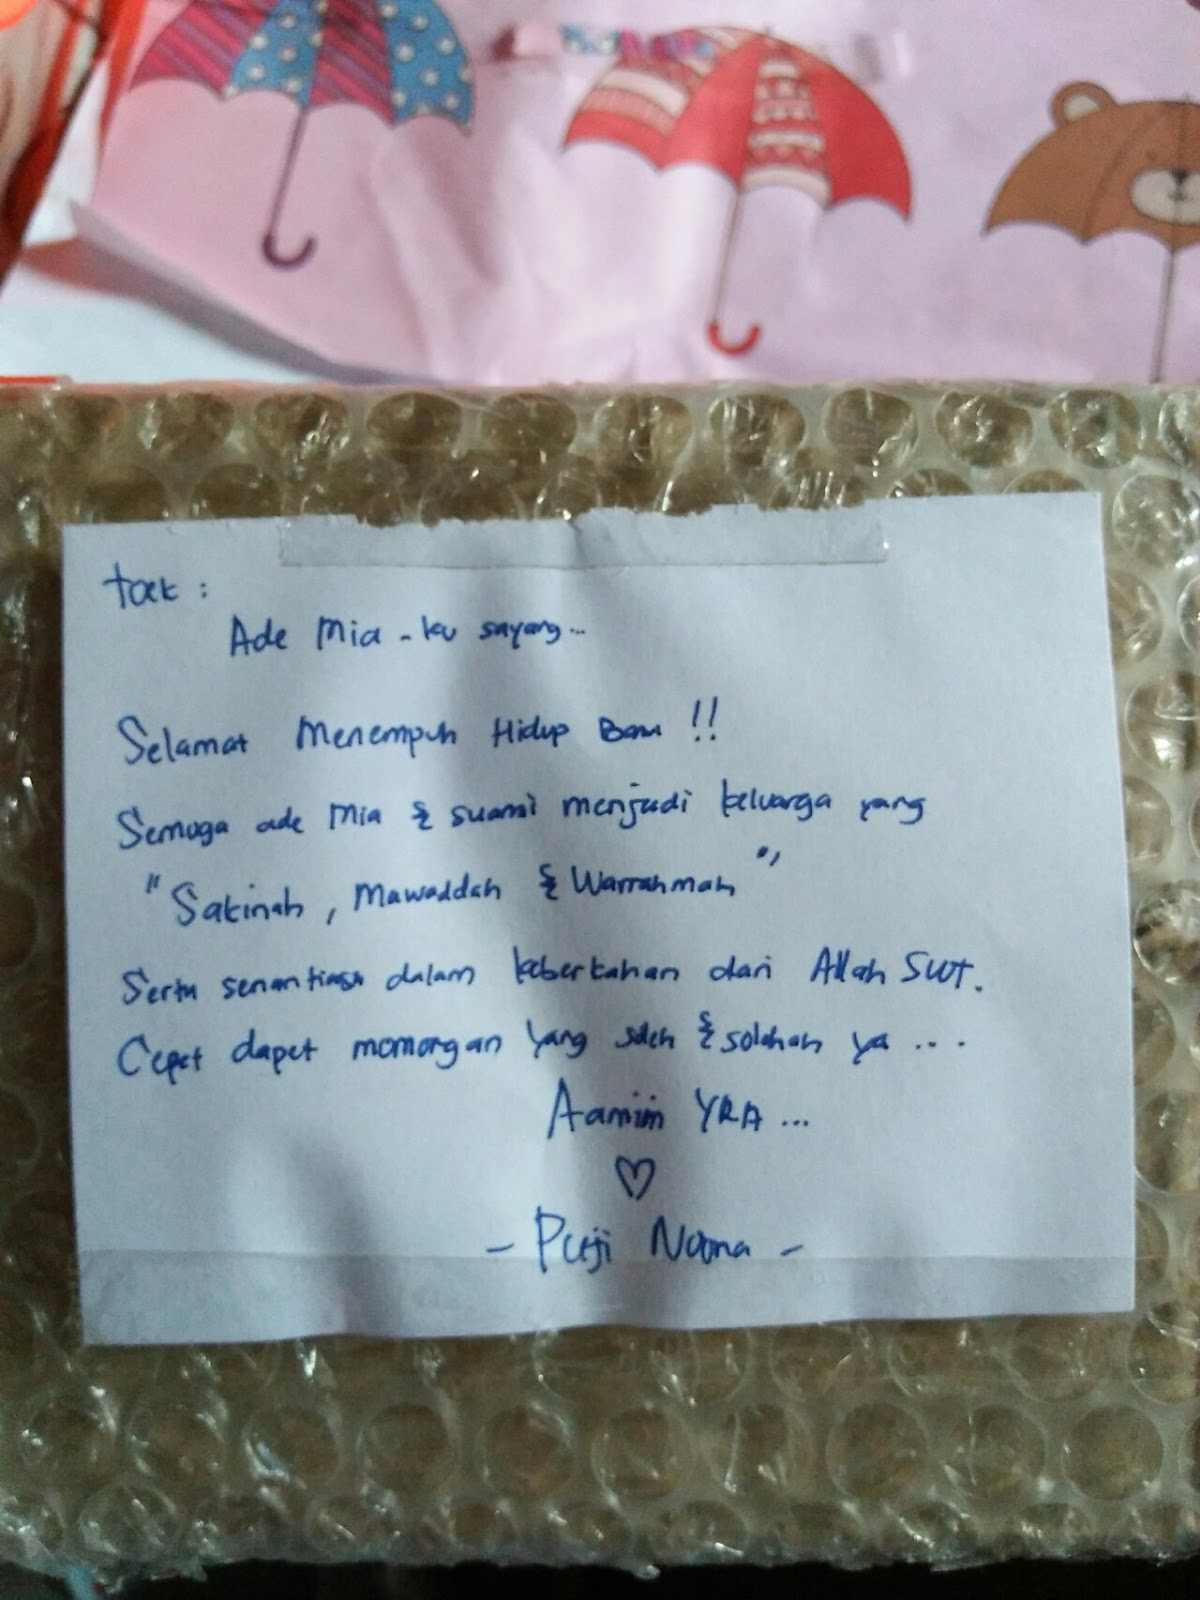 toek :
Ade Mia - ku sayang...
Selamat Menempuh Hidup Baru !!
Semoga ade Mia & suami menjadi keluarga yang
"Sakinah, Mawaddah & Warrahmah"
Serta senantiasa dalam keberkahan dari Allah SWT.
Cepet dapet momongan yang soleh & solehah ya ....
Aamiin YRA ...
♡
- Puji Nooma -